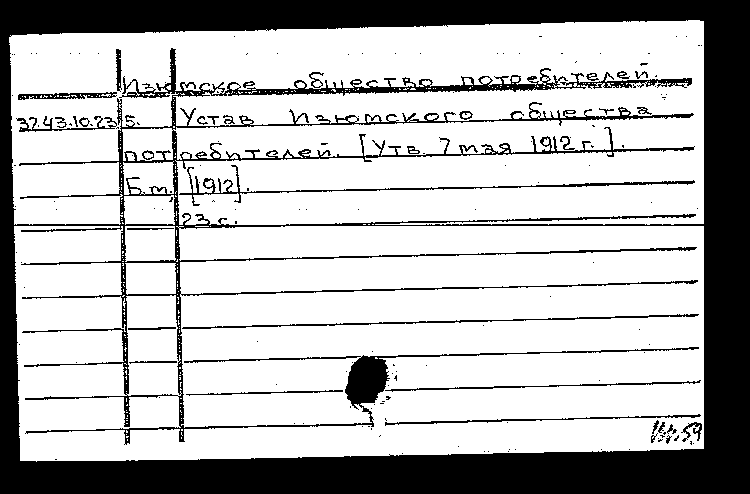 Изюмское общество потребителей.
37.43.10.23 5. Устав Изюмского общества
потребителей. [Утв. 7 мая 1912 г.].
Б.м., [1912].
23 с.